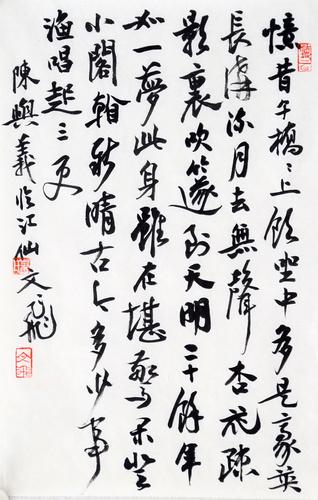 憶昔午橋〻上飲坐中多是豪英
長溝流月去無聲杏花疎
影裏吹篴到天明二十餘年
如一夢此身雖在堪驚閒登
小閣看新晴古今多少事
漁唱起三更
陳與義臨江仙文飛